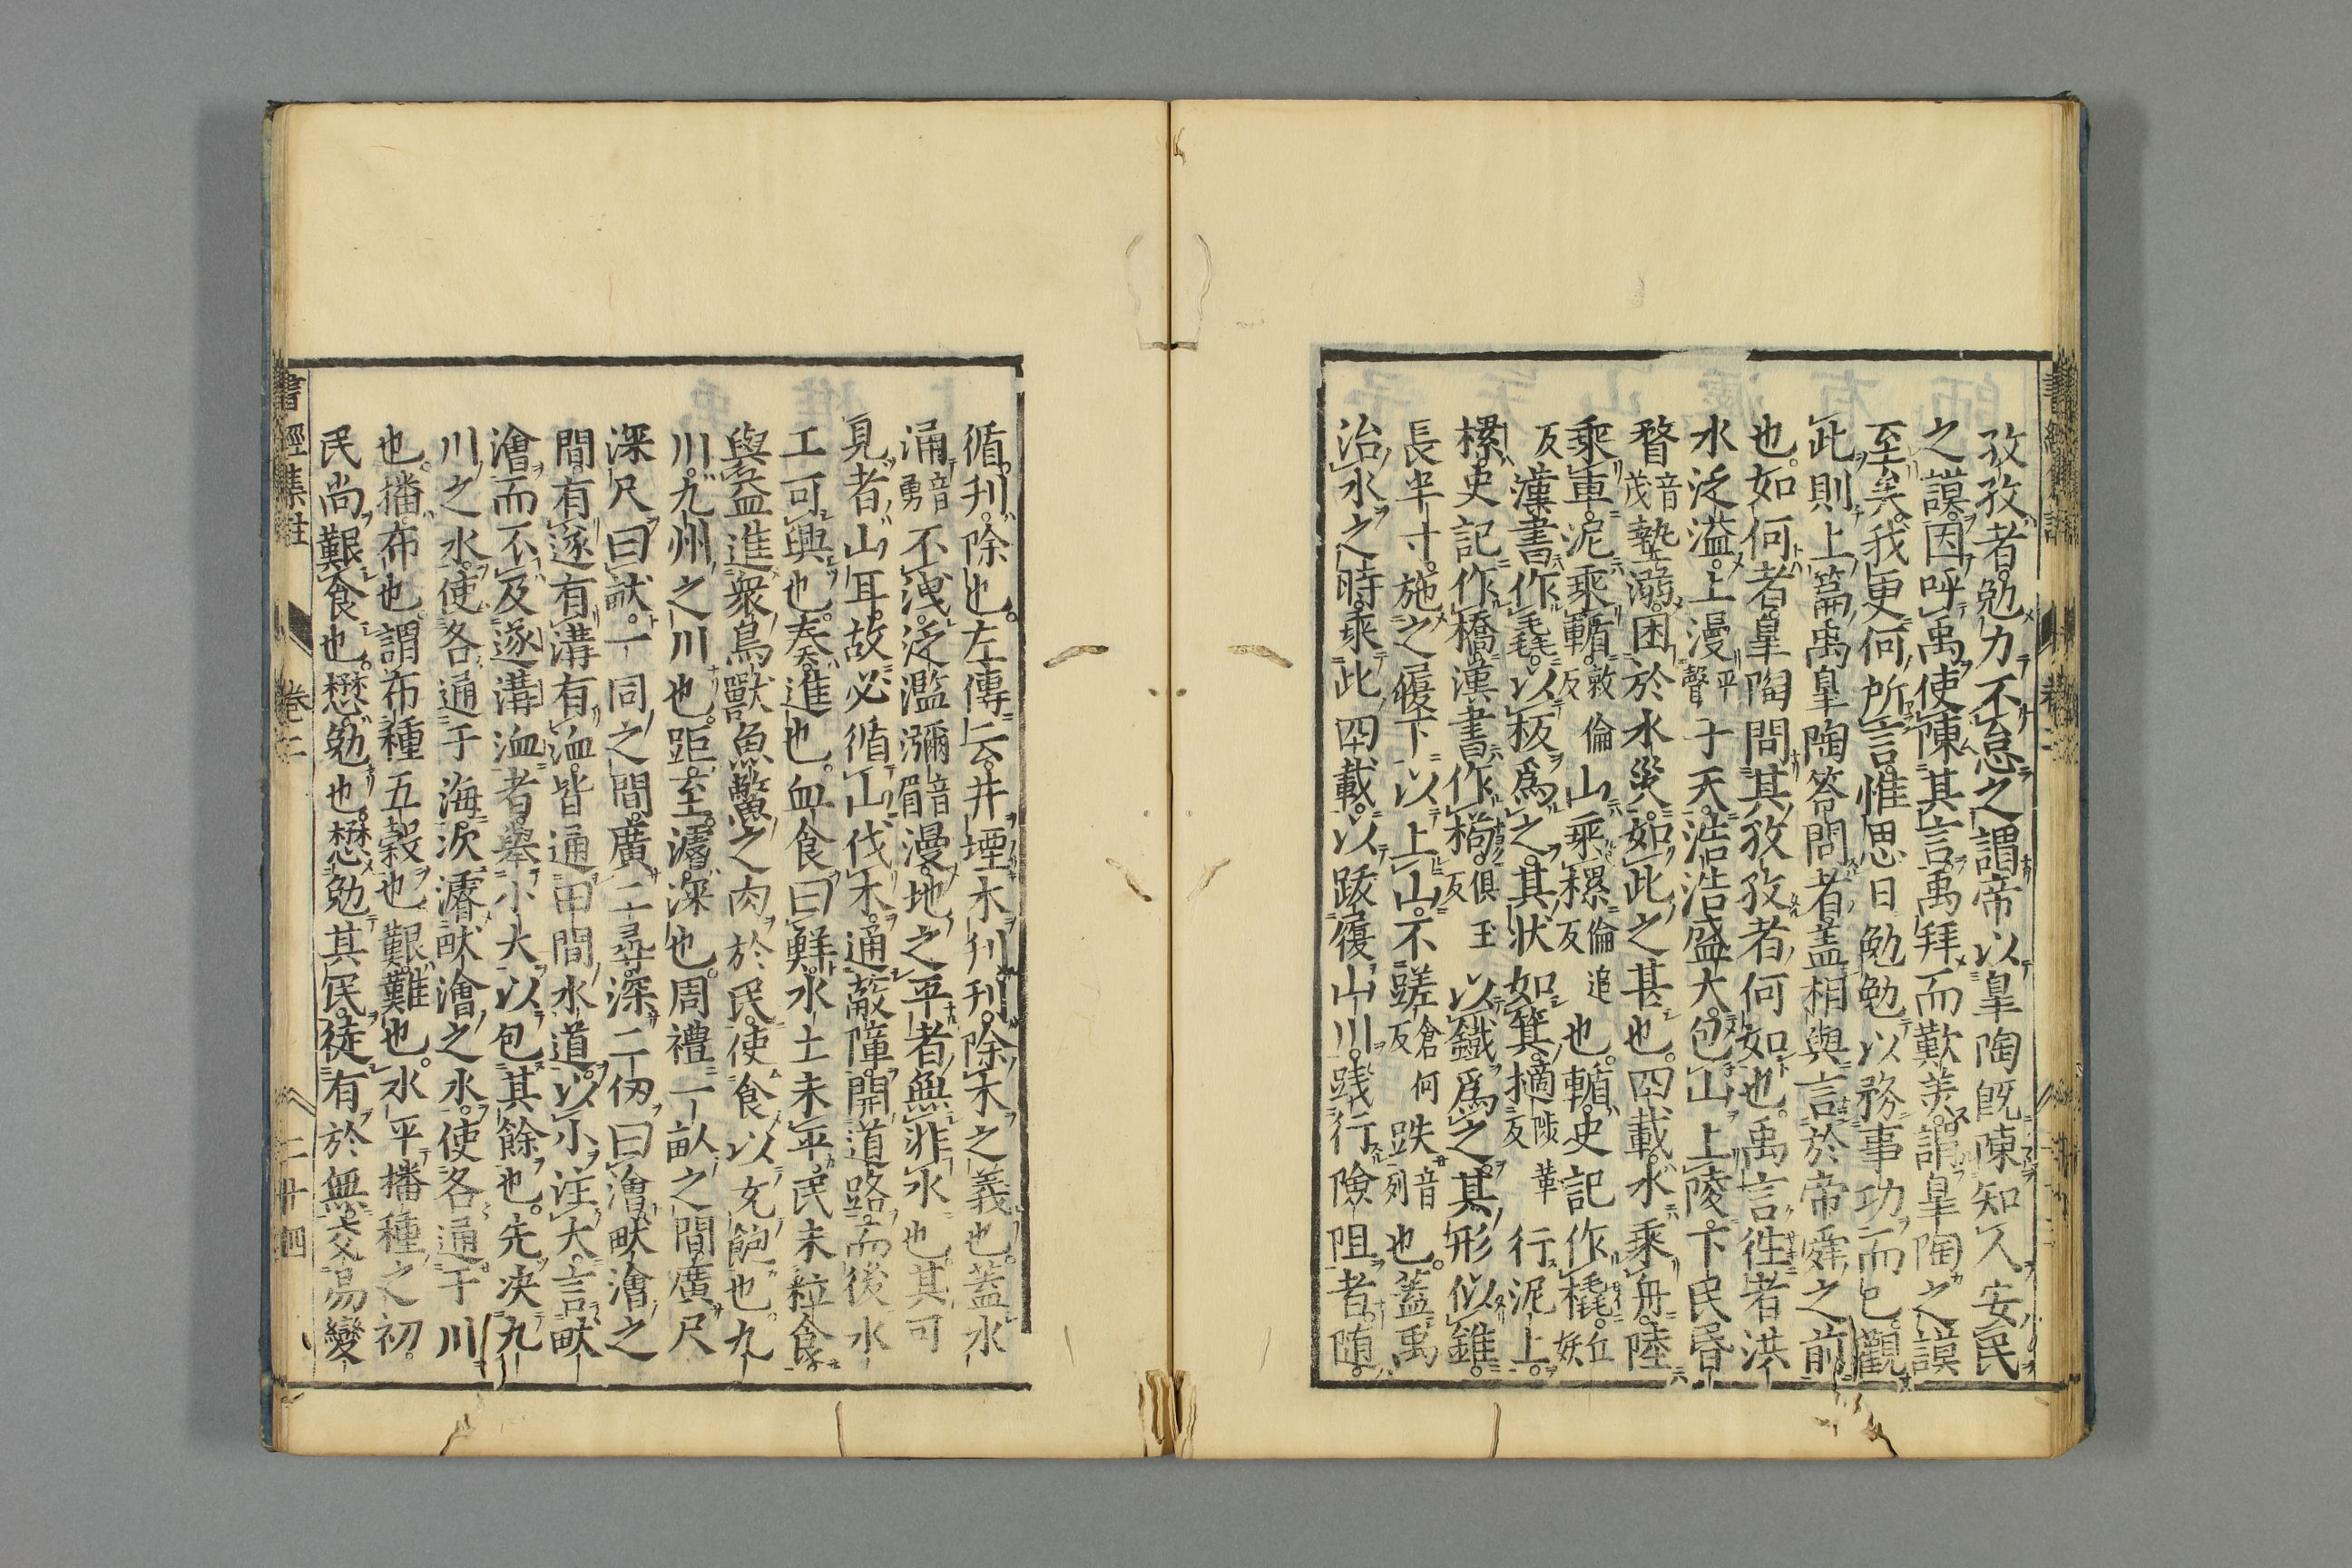 孜孜者。勉力不怠之謂。帝以皐陶既陳知人安民
之謨。因呼禹使陳其言。禹拜而歎美。謂皐陶之謨
至矣。我更何所言。惟思日勉勉以務事功而已。觀
此則上篇禹皐陶答問者。蓋相與言於帝舜之前
也。如何者。皐陶問其孜孜者何如也。禹言徃者洪
水泛溢。上漫平聲于天。浩浩盛大。包山上陵。下民昏
瞀音茂墊溺。困於水災。如此之甚也。四載。水乘舟。陸
乘車。泥乘輴。敦倫反山乘樏。倫追反也。輴。史記作橇。丘妖
反漢書作毳。以板爲之。其状如箕。擿陟革反行泥上。
樏。史記作橋。漢書作梮。俱玉反以鐵爲之。其形似錐。
長半寸。施之履下。以上山。不蹉倉何反跌音列也。蓋禹
治水之時。乘此四載。以跋履山川。踐行險阻者。随
循。刋。除也。左傳云。井堙木刋。刋。除木之義也。蓋水
涌音勇不洩。泛濫瀰音眉漫。地之平者。無非水也。其可
見者。山耳。故必循山伐木。通蔽障。開道路。而後水
工可興也。奏。進也。血食曰鮮。水土未平。民未粒食。
與益進衆鳥獸魚鱉之肉於民。使食以充飽也。九
川。九州之川也。距。至。濬。深也。周禮一畝之間。廣尺
深尺曰畎。一同之間。廣二尋。深二仞曰澮。畎澮之
間。有遂有溝有洫。皆通田間水道。以小注大。言畎
澮而不及遂溝洫者。舉小大以包其餘也。先决九
川之水。使各通于海。次濬畎澮之水。使各通于川
也。播。布也。謂布種五穀也。艱。難也。水平播種之初。
民尚艱食也。懋。勉也。懋勉其民。徒有於無。交易變
書經集註 卷二 二十四